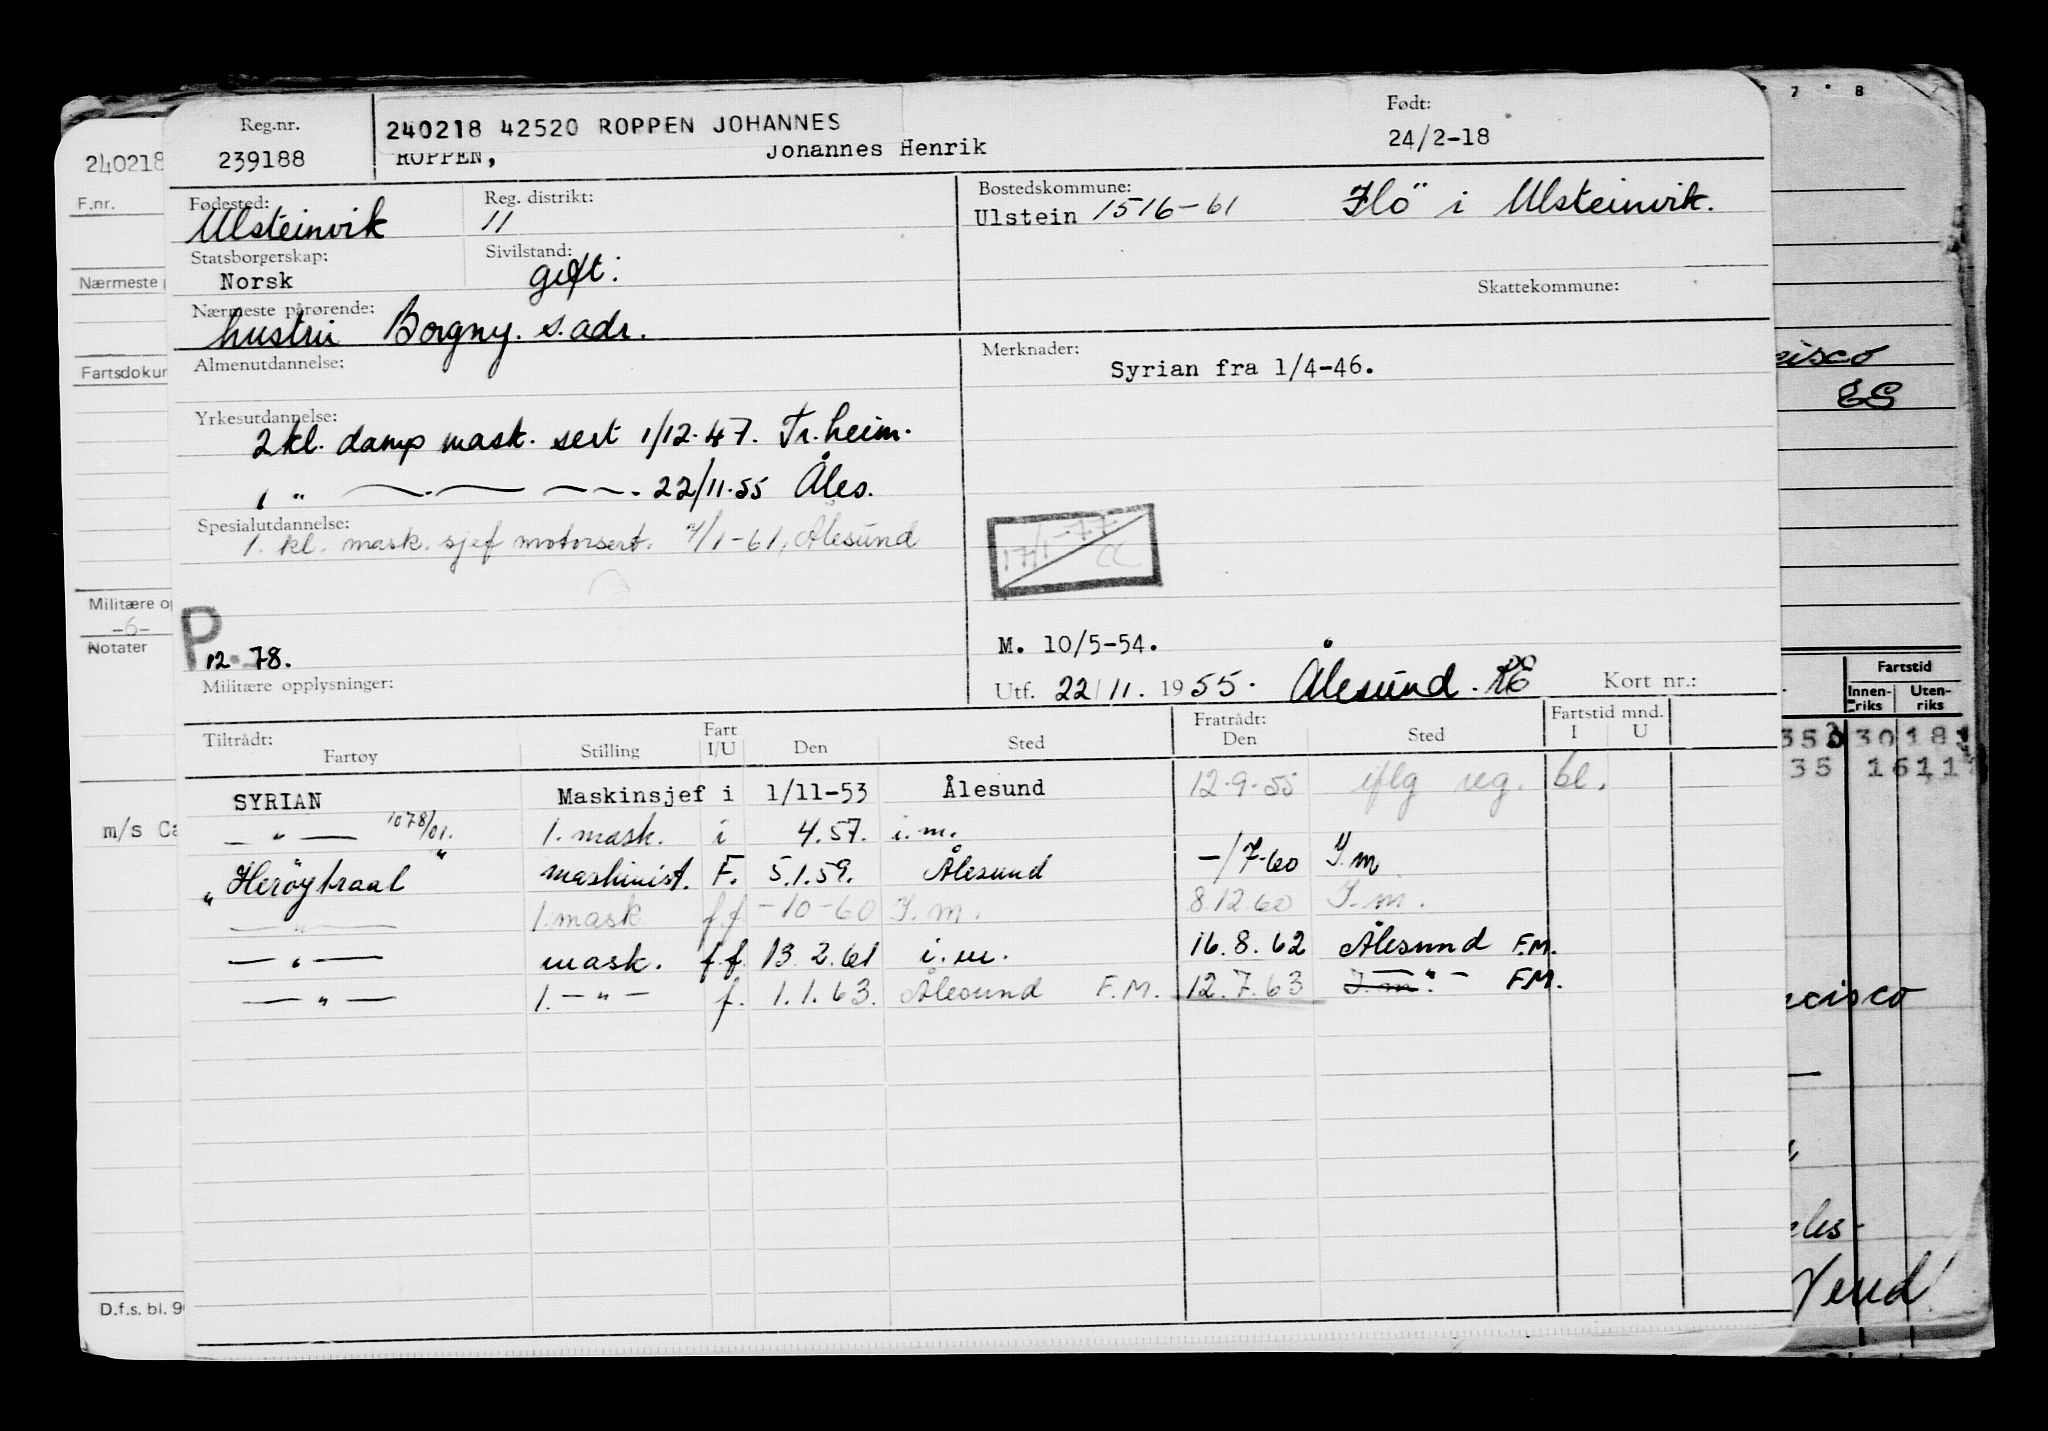 Reg.nr.
239188
240218 42520 ROPPEN JOHANNES
ROPPEN, Johannes Henrik
Født:
24/2-18
Fødested:
Ulsteinvik
Reg. distrikt:
11
Bostedskommune:
Ulstein 1516-61 Flö i Ulsteinvik.
Statsborgerskap:
Norsk
Sivilstand:
gift.
Skattekommune:
Nærmeste pårørende:
hustru Borgny. s.adr.
Almenutdannelse:
Merknader:
Syrian fra 1/4-46.
Yrkesutdannelse:
2kl. damp mask. sert 1/12.47. Tr.heim.
1 " — . — — - . 22/11.55 Åles.
Spesialutdannelse:
1. kl. mask. sjef motorsert. 7/1-61, Ålesund
17/1-77
CC
P
12.78.
M. 10/5-54.
Militære opplysninger:
Utf. 22/11. 1955. Ålesund. Kort nr.:
Tiltrådt:
Fartøy Stilling Fart I/U Den Sted Fratrådt: Den Sted Fartstid mnd. I U
SYRIAN Maskinsjef i 1/11-53 Ålesund 12.9.55 iflg reg. bl.
— " — 1078/01. 1. mask. i 4.57. i.m.
"Herøytraal" maskinist. F. 5.1.59. Ålesund -/7-60 I.m
— " — 1.mask f.f. -10-60 I.m. 8.12.60 I.m.
— " — mask. f.f. 13.2.61 i.m. 16.8.62 Ålesund F.M.
— " — 1. — " — f. 1.1.63. Ålesund F.M. 12.7.63 — " — F.M.
240218
F.nr.
Nærmeste
Fartsdokur
Militære op
-6-
Notater
m/s Ca
D.f.s. bl. 9
7 8
cisco
ES
Fartstid
Innen-
riks
Uten-
riks
30 181
35 16 11
ncisco